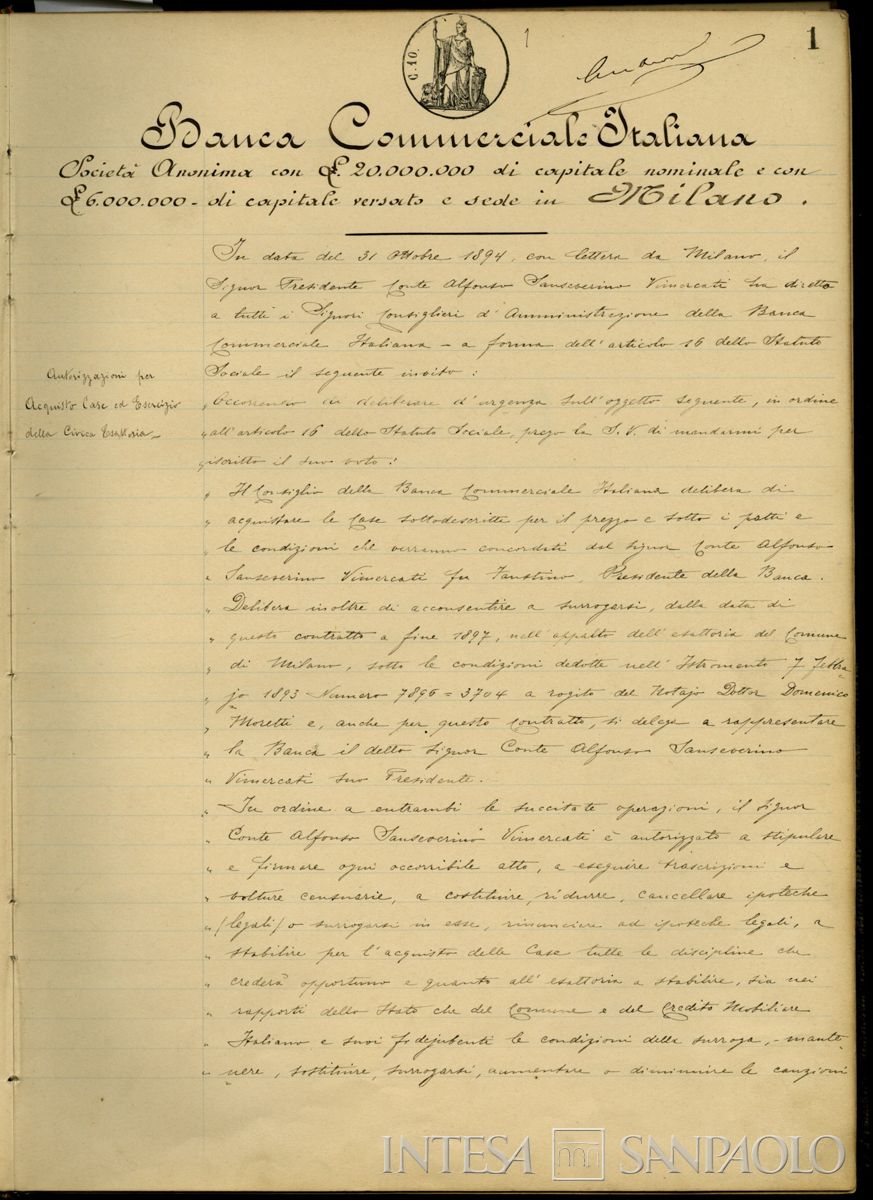 C. 10.
1
1
Banca Commerciale Italiana
Società Anonima con £. 20.000.000 di capitale nominale e con
£ 6.000.000 - di capitale versato e sede in Milano.
In data del 31 Ottobre 1894, con lettera da Milano, il
Signor Presidente Conte Alfonso Sanseverino Vimercati ha diretto
a tutti i Signori Consiglieri d'Amministrazione della Banca
Commerciale Italiana - a forma dell'articolo 16 dello Statuto
Sociale il seguente invito:
Autorizzazioni per
Acquisto Case ed Esercizio
della Civica Esattoria -
„ Occorrendo di deliberare d'urgenza sull'oggetto seguente, in ordine
„ all'articolo 16 dello Statuto Sociale, prego la S. V. di mandarmi per
„ iscritto il suo voto:
„ Il Consiglio della Banca Commerciale Italiana delibera di
„ acquistare le Case sottodescritte per il prezzo e sotto i patti e
„ le condizioni che verranno concordati dal Signor Conte Alfonso
„ Sanseverino Vimercati fu Faustino, Presidente della Banca.
„ Delibera inoltre di acconsentire a surrogarsi, dalla data di
„ questo contratto a fine 1897, nell'appalto dell'esattoria del Comune
„ di Milano, sotto le condizioni dedotte nell'Istromento 7 febbra-
„ jo 1893 Numero 7896=3704 a rogito del Notajo Dottor Domenico
„ Moretti e, anche per questo contratto, si delega a rappresentare
„ la Banca il detto Signor Conte Alfonso Sanseverino
„ Vimercati suo Presidente.
„ In ordine a entrambi le succitate operazioni, il Signor
„ Conte Alfonso Sanseverino Vimercati è autorizzato a stipulare
„ e firmare ogni occorribile atto, a eseguire trascrizioni e
„ volture censuarie, a costituire, ridurre, cancellare ipoteche
„ (legali) o surrogarsi in esse, rinunciare ad ipoteche legali, a
„ stabilire per l'acquisto delle Case tutte le discipline che
„ crederà opportuno e quanto all'esattoria a stabilire, sia nei
„ rapporti dello Stato che del Comune e del Credito Mobiliare
„ Italiano e suoi fidejubenti le condizioni della surroga, - mante-
„ nere, sostituire, surrogarsi, aumentare o diminuire le cauzioni
INTESA SANPAOLO